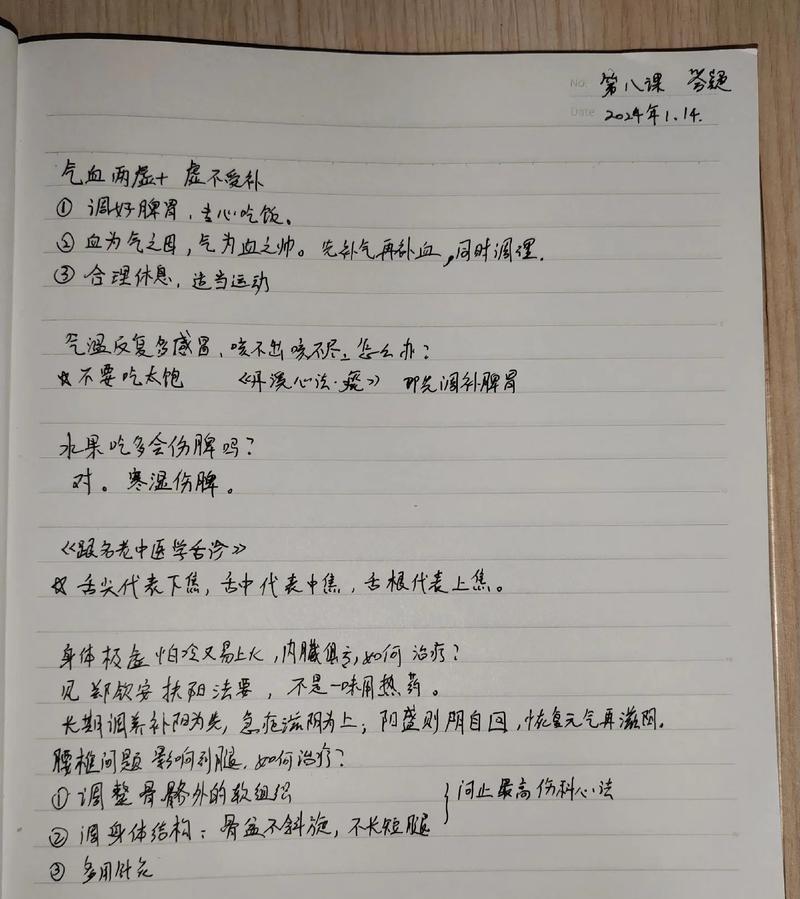 No. 第八课 答疑
Date 2024年1.14.
气血两虚+ 虚不受补
① 调好脾胃,专心吃饭。
② 血为气之母,气为血之帅。先补气再补血,同时调理.
③ 合理休息,适当运动
气温反复多感冒,咳不出咳不尽,怎么办?
☆不要吃太饱 《丹溪心法·痰》 即先调补脾胃
水果吃多会伤脾吗?
对。寒湿伤脾。
《跟名老中医学舌诊》
☆ 舌尖代表下焦,舌中代表中焦,舌根代表上焦。
身体极虚怕冷又易上火,内臓俱亏,如何治疗?
见郑钦安扶阳法要,不是一味用热药。
长期调养补阳为先,急症滋阴为上;阳盛则阴自回,恢复元气再滋阴。
腰椎问题影响到腿,如何治疗?
① 调整骨骼外的软组织
② 调身体结构:骨盆不斜旋,不长短腿 } 问止最高伤科心法
③ 多用针灸